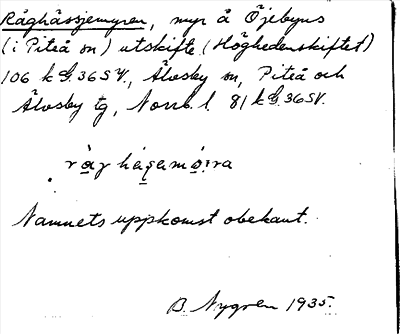 Råghässjemyren, myr å Öjebyns
(i Piteå sn) utskifte (Höghedenskiftet)
106 k G. 36SV., Älvsby sn, Piteå och
Älvsby tg, Norrb. l. 81 k G. 36SV.
Namnets uppkomst obekant.
B. Nygren 1935.